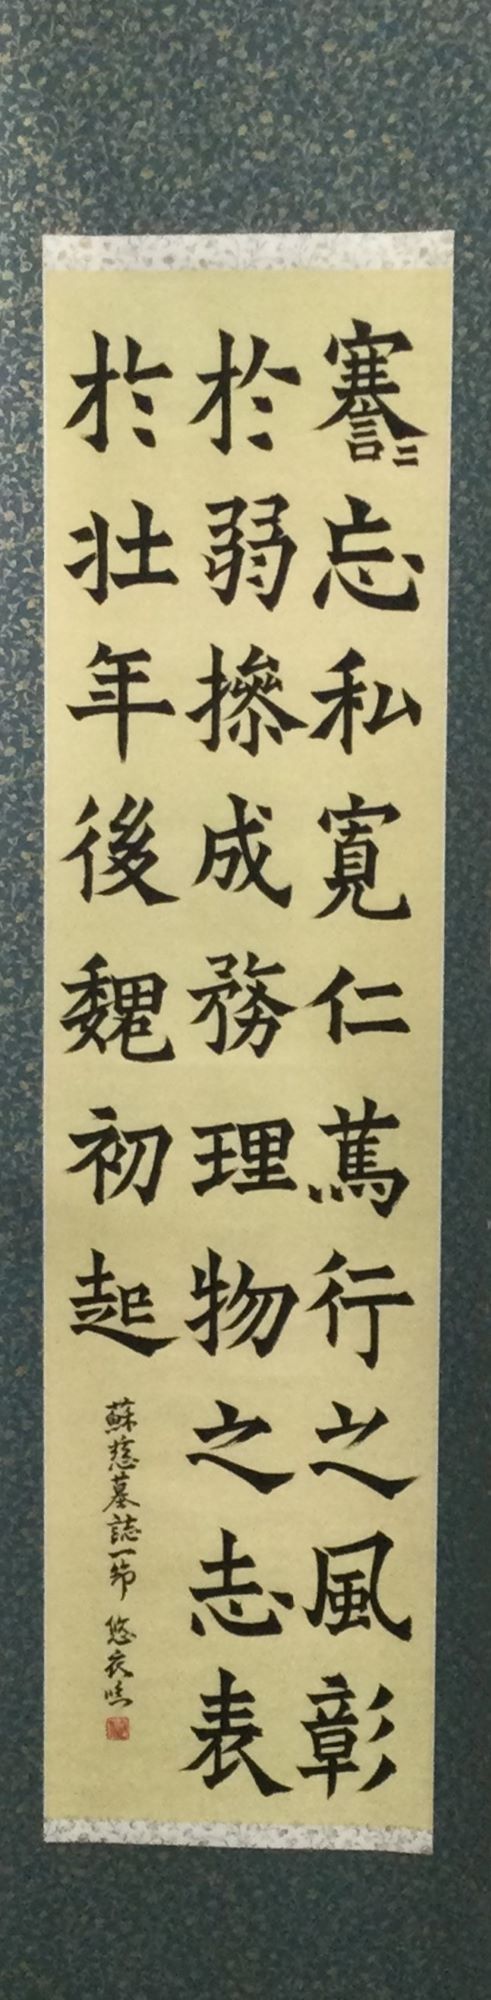 謇〻忘私寬仁蔿行之風彰
於弱操成務理物之志表
於壮年後魏初起
蘇慈墓誌一節 悠衣